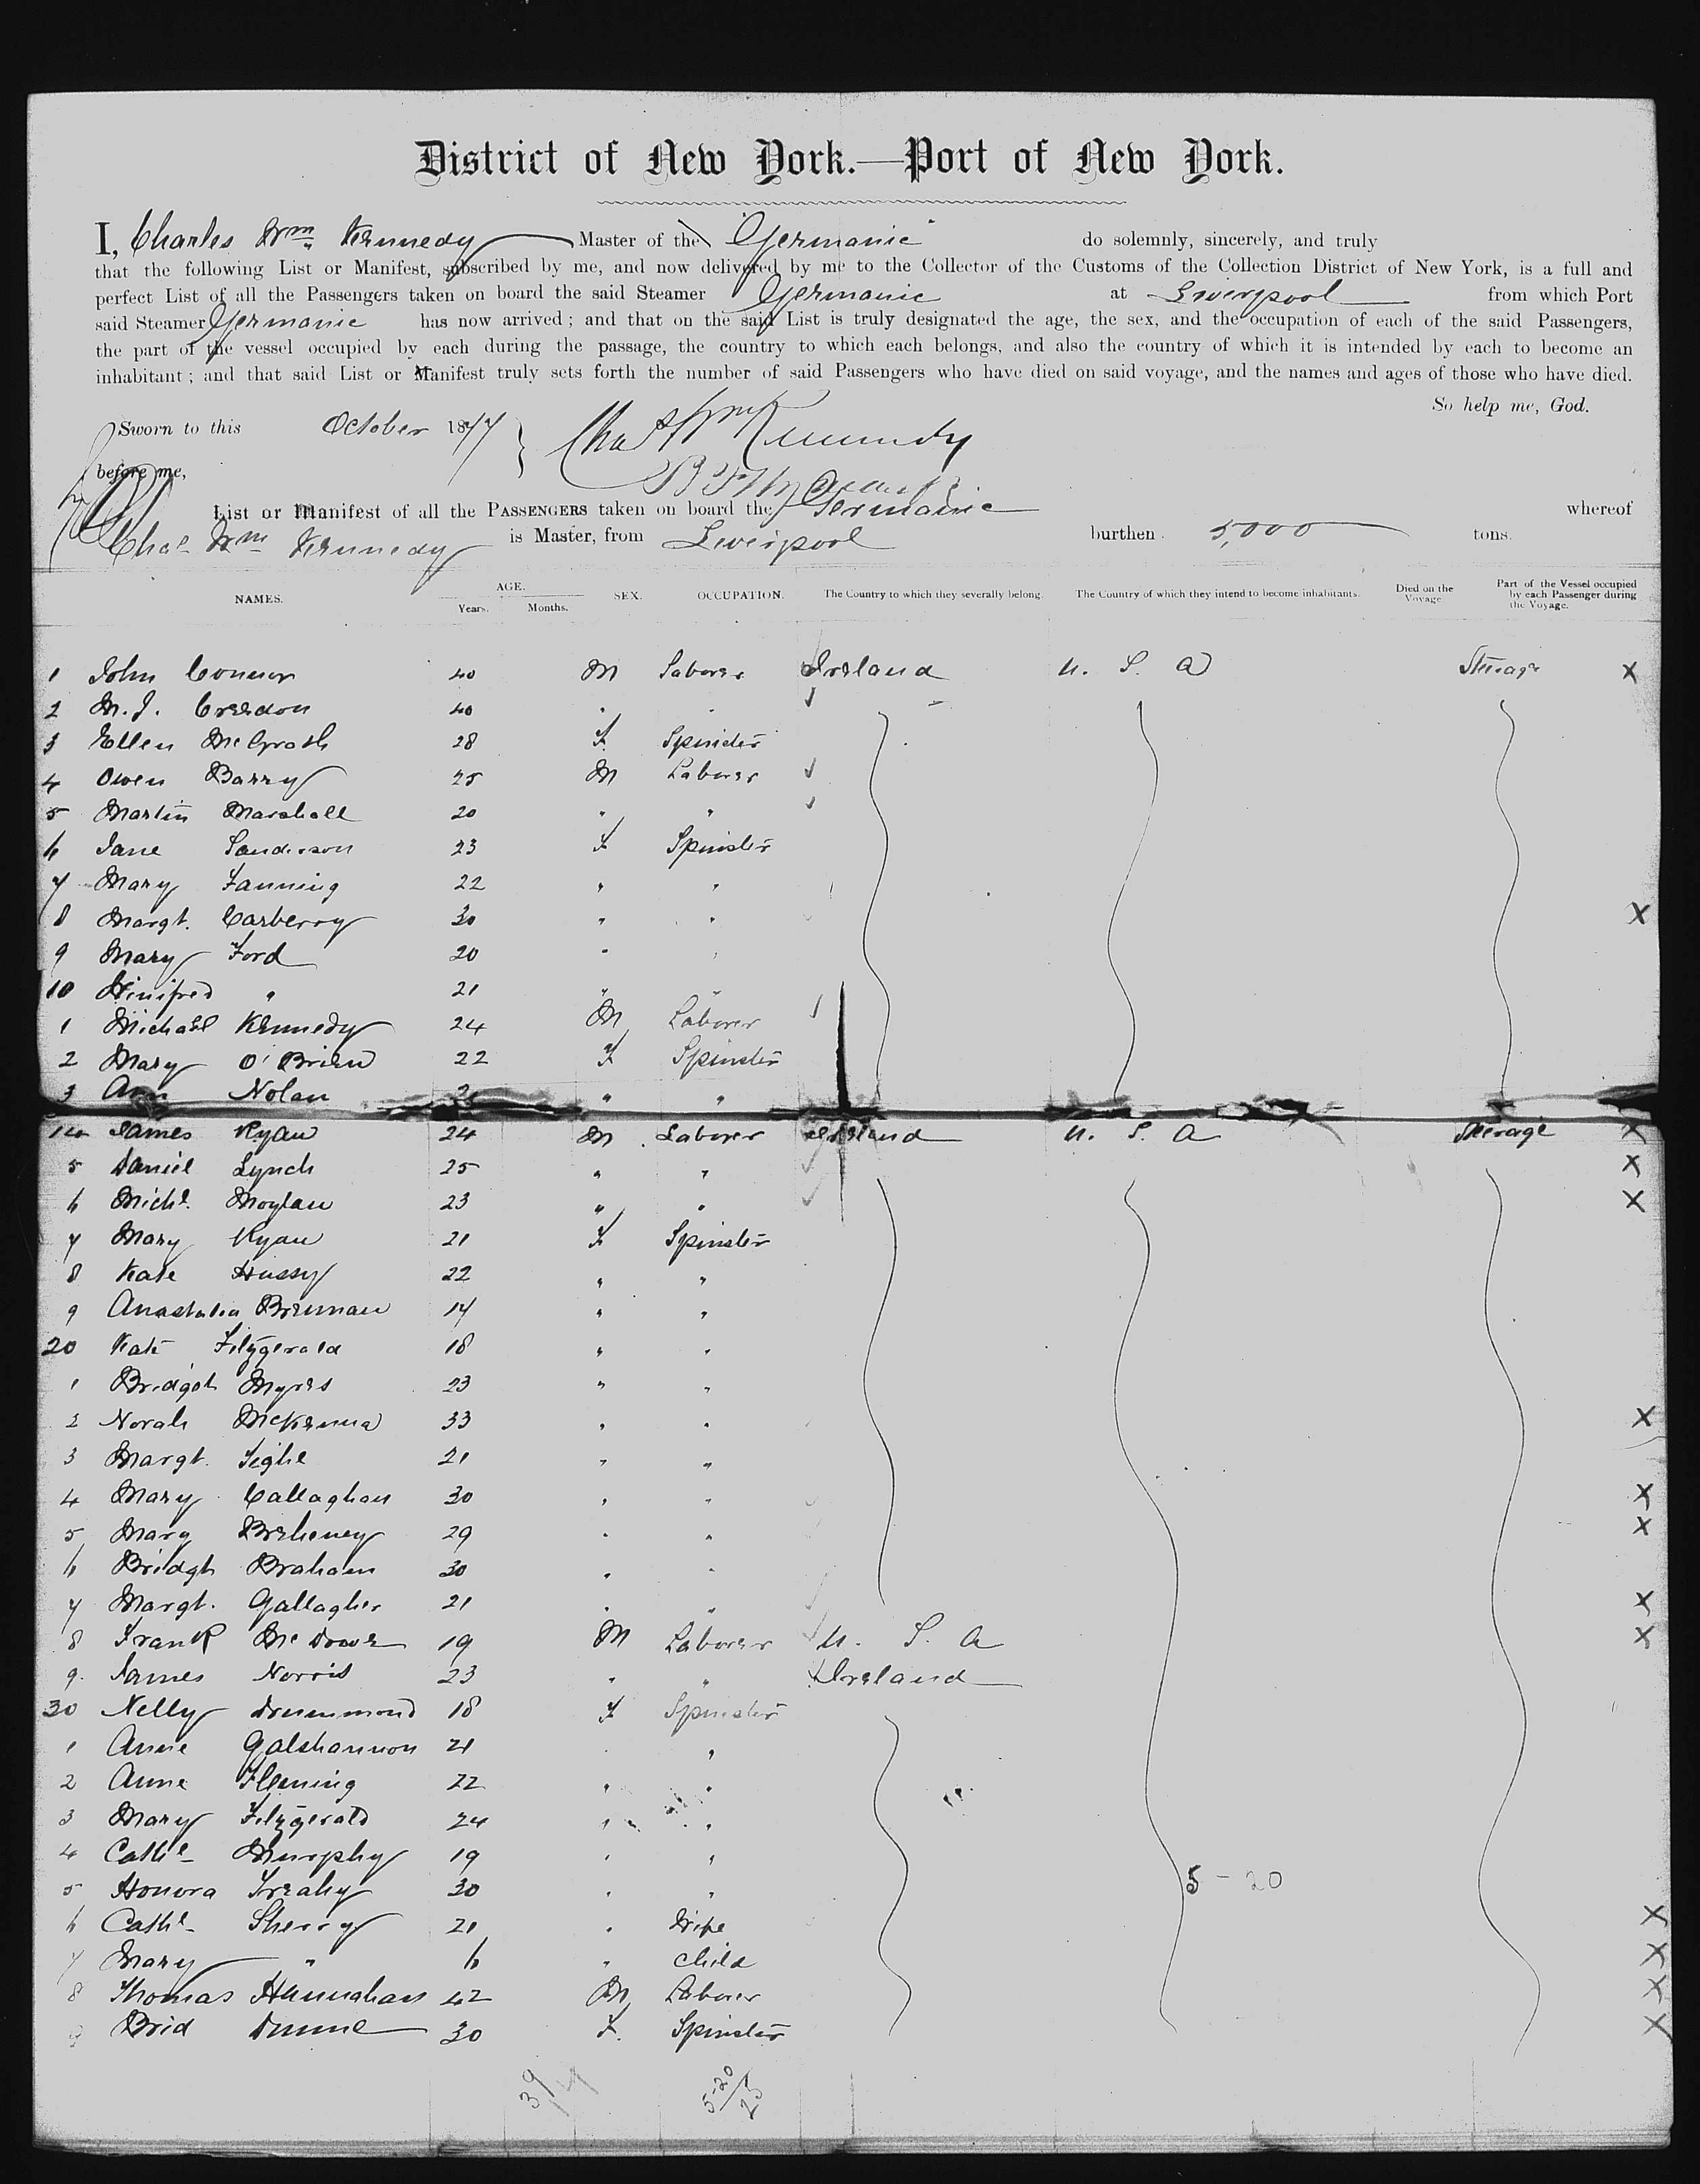 District of New York.—Port of New York.
I, Charles Wm Kennedy Master of the Germanic do solemnly, sincerely, and truly
that the following List or Manifest, subscribed by me, and now delivered by me to the Collector of the Customs of the Collection District of New York, is a full and
perfect List of all the Passengers taken on board the said Steamer Germanic at Liverpool from which Port
said Steamer Germanic has now arrived; and that on the said List is truly designated the age, the sex, and the occupation of each of the said Passengers,
the part of the vessel occupied by each during the passage, the country to which each belongs, and also the country of which it is intended by each to become an
inhabitant; and that said List or Manifest truly sets forth the number of said Passengers who have died on said voyage, and the names and ages of those who have died.
So help me, God.
Sworn to this October 1877 } Chas Wm Kennedy
before me,
List or Manifest of all the PASSENGERS taken on board the Germanic whereof
Chas Wm Kennedy is Master, from Liverpool burthen 5,000 tons.
NAMES. AGE. Years. Months. SEX. OCCUPATION. The Country to which they severally belong. The Country of which they intend to become inhabitants. Died on the Voyage Part of the Vessel occupied by each Passenger during the Voyage.
1 John Connor 40 M Laborer Ireland U. S. A Steerage X
2 M. J. Creedon 40 " "
3 Ellen McGrath 28 F Spinster
4 Owen Barry 25 M Laborer
5 Martin Marshall 20 " "
6 Jane Sanderson 23 F Spinster
7 Mary Fanning 22 " "
8 Margt. Carberry 30 " " X
9 Mary Ford 20 " "
10 Winifred " 21 " "
1 Michael Kennedy 24 M Laborer
2 Mary O'Brien 22 F Spinster
3 Ann Nolan " "
14 James Ryan 24 M Laborer Ireland U. S. A Steerage X
5 Daniel Lynch 25 " " X
6 Michl. Moylan 23 " " X
7 Mary Ryan 21 F Spinster
8 Kate Hussy 22 " "
9 Anastatia Brennan 17 " "
20 Kate Fitzgerald 18 " "
1 Bridget Myres 23 " "
2 Norah McKenna 33 " " X
3 Margt. Tighe 21 " "
4 Mary Callaghan 30 " " X
5 Mary Breheney 29 " " X
6 Bridgt Braham 30 " "
7 Margt. Gallagher 21 " " X
8 Frank 19 M Laborer U. S. A X
9 James Norris 23 " " Ireland
30 Nelly Drummond 18 F Spinster
1 Annie Galshannon 21 " "
2 Anne Fleming 22 " "
3 Mary Fitzgerald 24 " "
4 Cathe Murphy 19 " "
5 Honora Treahy 30 " " 5 - 20
6 Cathe Sherry 21 " Wife X
7 Mary " 6 " Child X
8 Thomas Hannahan 42 M Laborer X
9 Brid Dunne 30 F. Spinster X
39
5-20/23